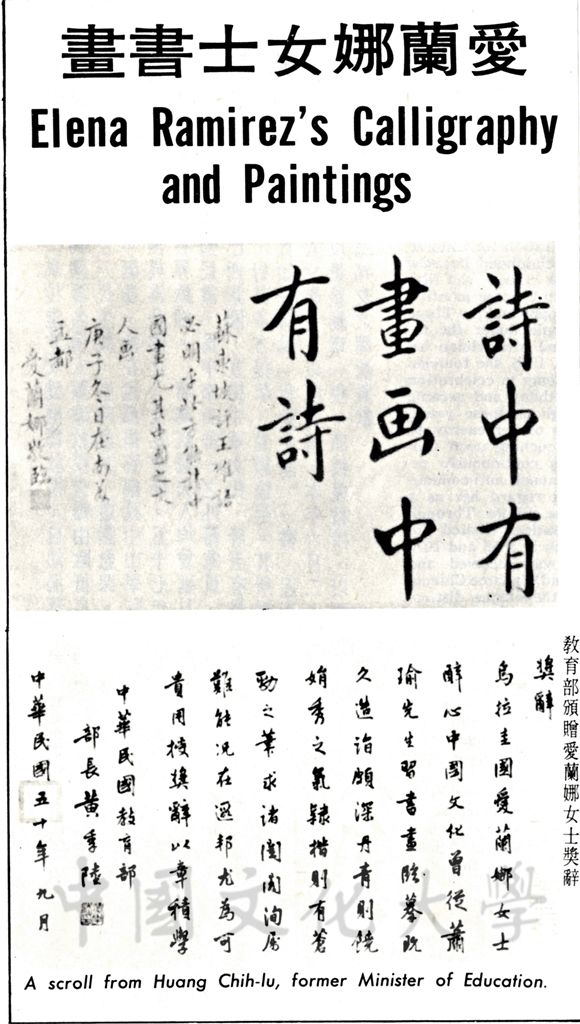 愛蘭娜女士書畫
Elena Ramirez's Calligraphy
and Paintings
詩中有
畫画中
有詩
蘇東坡評王維語
國畫尤其中國之文
人画
庚子冬日在南美
愛蘭娜敬臨
敎育部頒贈愛蘭娜女士獎辭
獎辭
烏拉圭國愛蘭娜女士
醉心中國文化曾從蕭
瑜先生習書畫臨摹既
久造詣頗深丹青則饒
娟秀之氣隸楷則有蒼
勁之筆求諸閨閣洵屬
難能況在遐邦尤為可
貴用授獎辭以章積學
中華民國教育部
部長黃季陸
中華民國五十年九月
中國文化大學
A scroll from Huang Chih-lu, former Minister of Education.